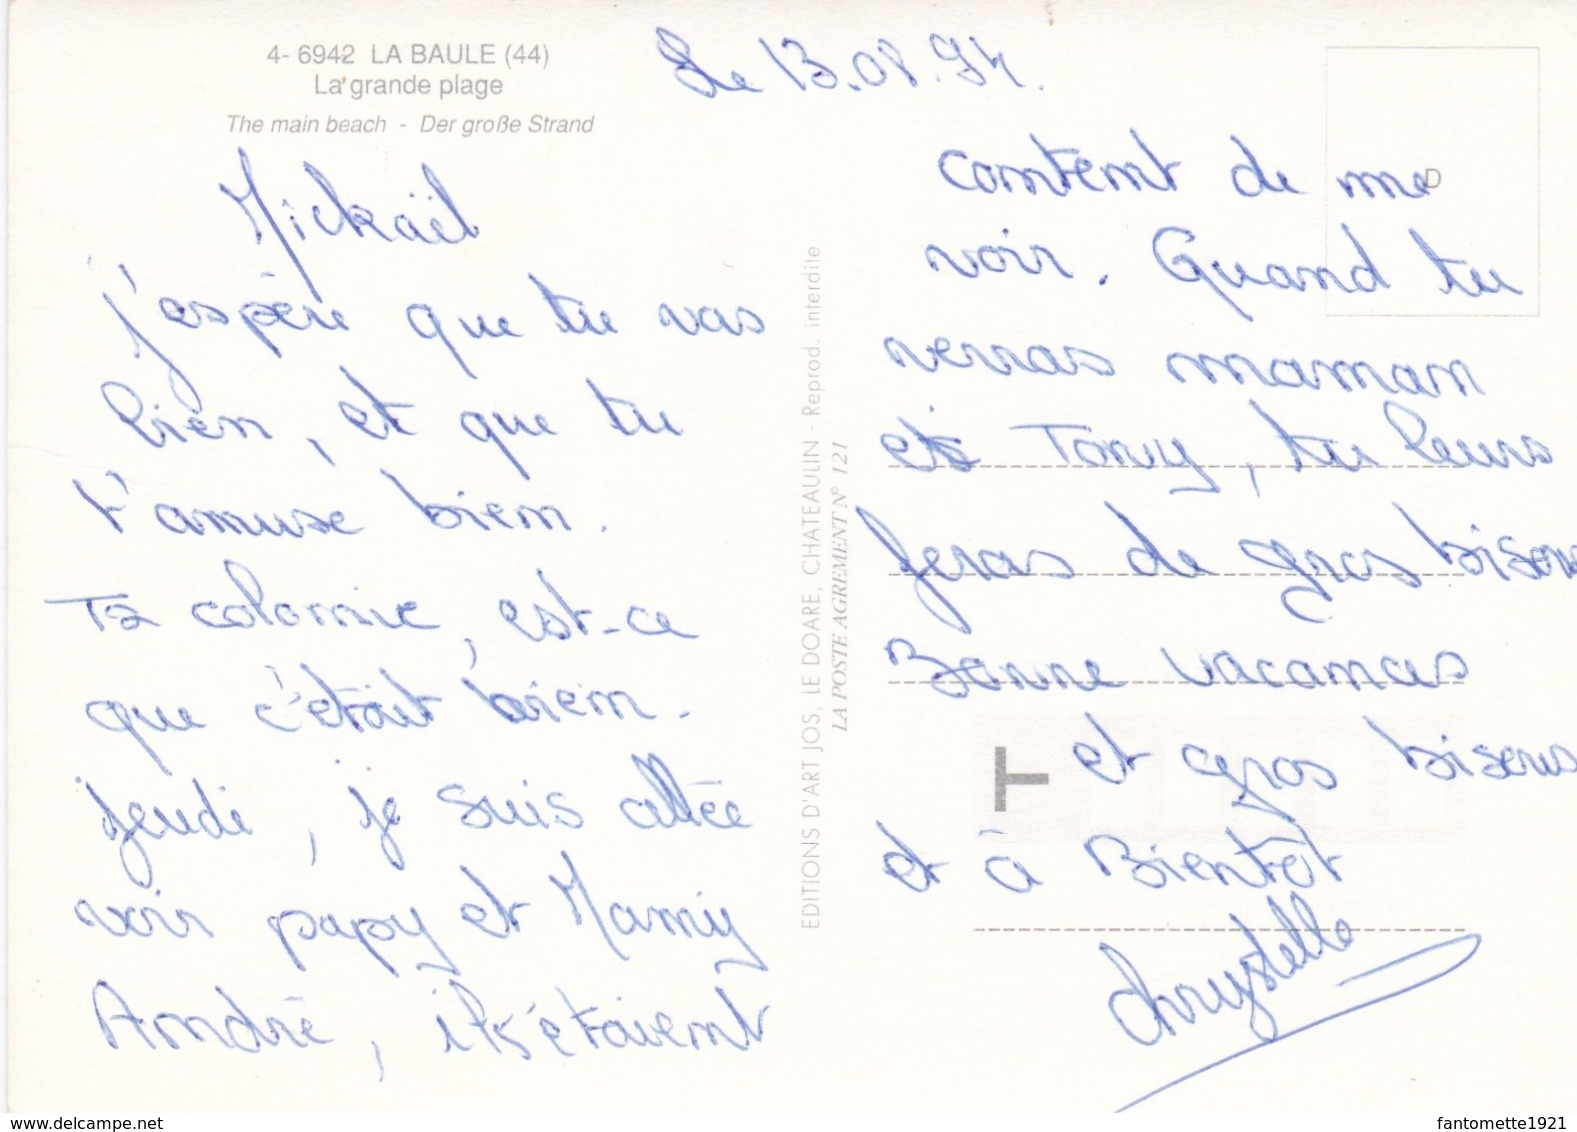 4- 6942 LA BAULE (44)
La grande plage
The main beach - Der große Strand
Le 13.08.94.
Mickaël
j'espère que tu vas
bien, et que tu
t'amuse bien.
Ta colonie, est-ce
que c'était bien.
jeudi, je suis allée
voir papy et Mamy
André, ils étaient
content de me
voir. Quand tu
verras maman
et Tony, tu leurs
feras de gros bisous
Bonne vacances
et gros bisous
et à Bientôt
Chrystelle
EDITIONS D'ART JOS, LE DOARE, CHATEAULIN - Reprod. interdite
LA POSTE AGREMENT N° 121
www.delcampe.net
fantomette1921